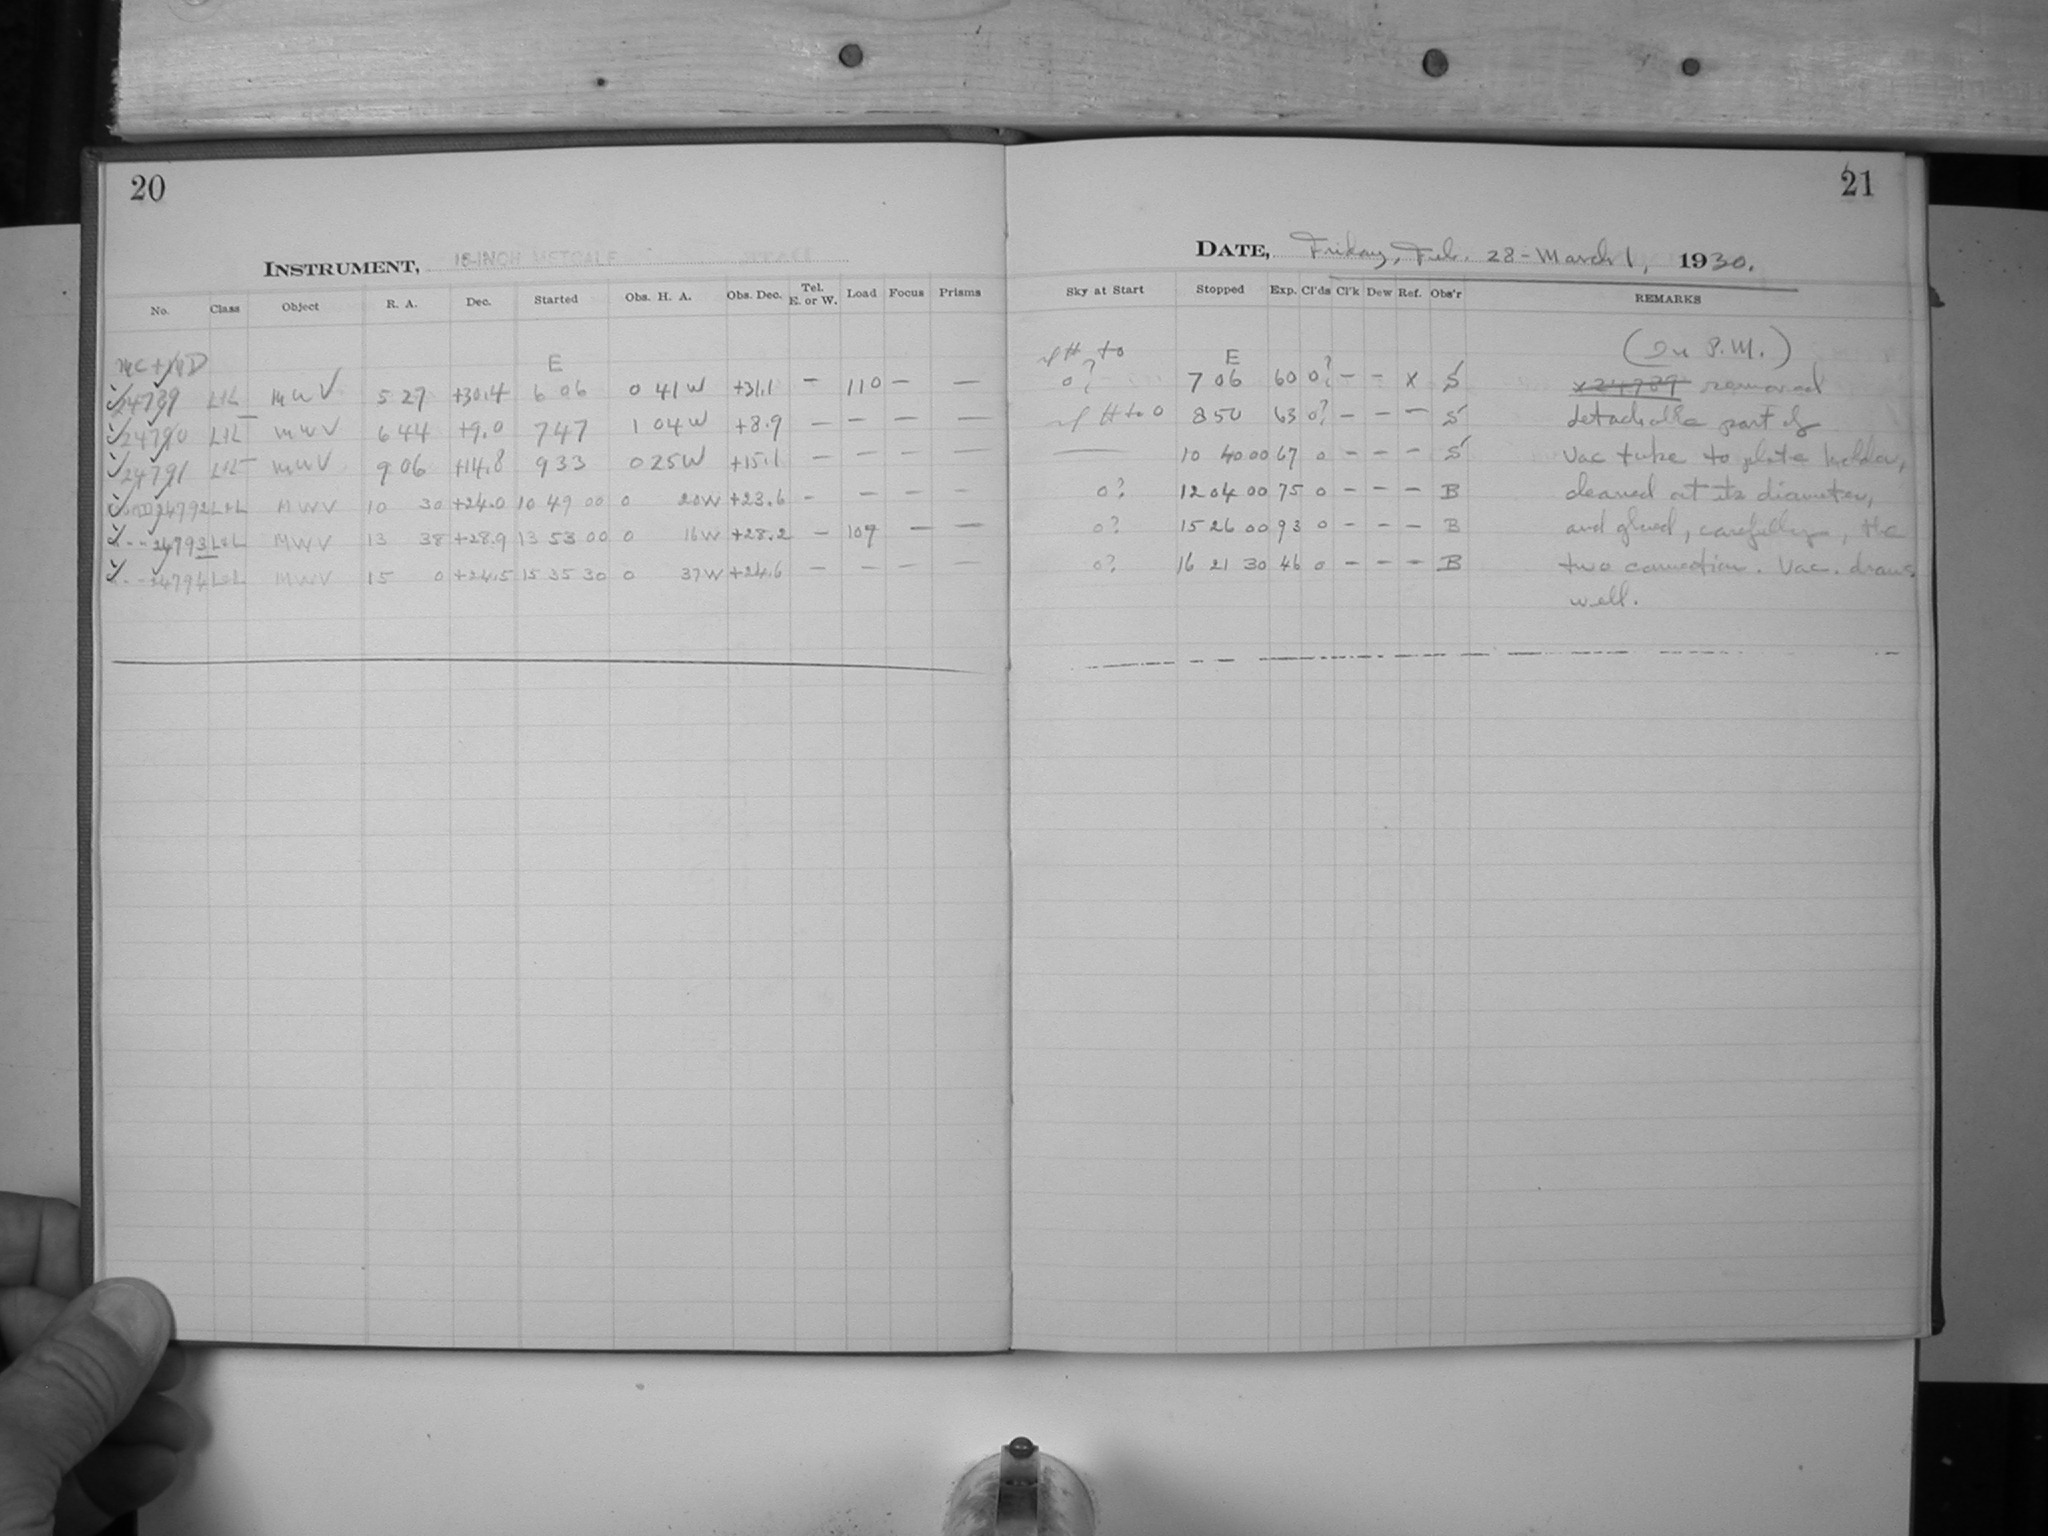 20
INSTRUMENT, 16-INCH METCALF
No. Class Object R. A. Dec. Started Obs. H. A. Obs. Dec. Tel. E. or W. Load Focus Prisms
MC E
24789 L+L MWV 5 27 +30.4 6 06 0 41 W +31.1 — 110 — —
24790 L+L MWV 6 44 +9.0 7 47 1 04 W +8.9 — — — —
24791 L+L MWV 9 06 +14.8 9 33 0 25 W +15.1 — — — —
24792 L+L MWV 10 30 +24.0 10 49 00 0 20W +23.6 - — — —
24793 L+L MWV 13 38 +28.9 13 53 00 0 16W +28.2 — 109 — —
24794 L+L MWV 15 0 +24.5 15 35 30 0 37W +24.6 — — — —
21
DATE, Friday, Feb. 28 - March 1, 1930.
Sky at Start Stopped Exp. Cl'ds Cl'k Dew Ref. Obs'r REMARKS
to E (In P.M.)
0? 7 06 60 0? — — x S x24789 removed
to 0 8 50 63 0? — — — S detachable part of
— 10 40 00 67 0 — — — S vac tube to plate holder,
0? 12 04 00 75 0 — — — B cleaned at its diameter,
0? 15 26 00 93 0 — — — B and glued, carefully, the
0? 16 21 30 46 0 — — — B two connection. Vac. draws
well.